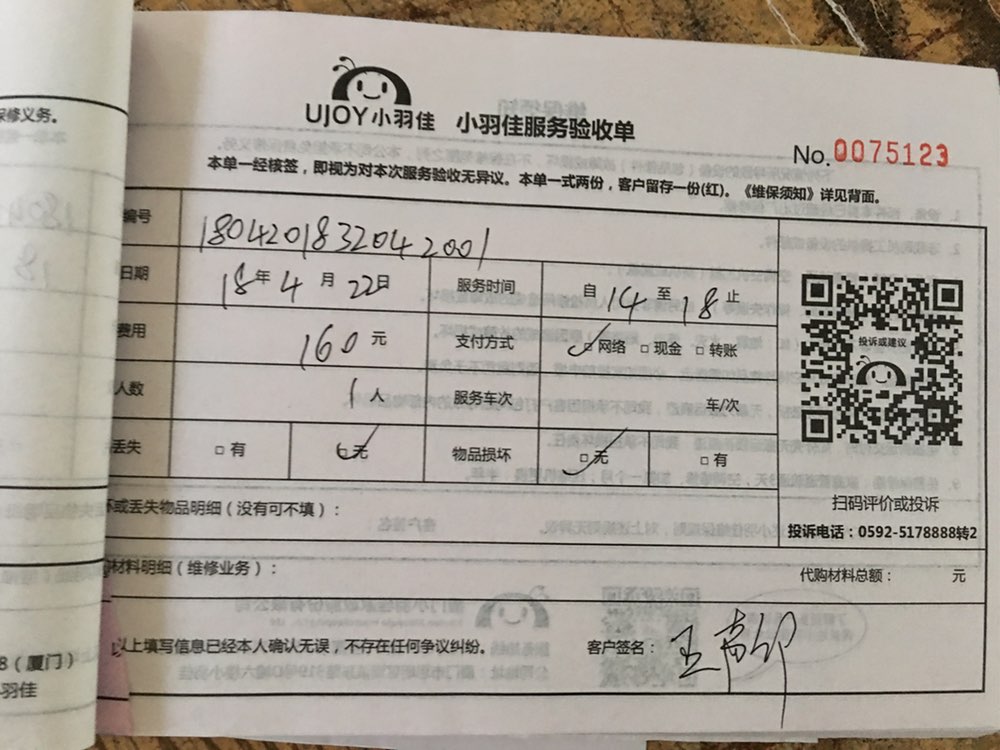 保修义务。
UJOY小羽佳 小羽佳服务验收单
No.0075123
本单一经核签，即视为对本次服务验收无异议。本单一式两份，客户留存一份(红)。《维保须知》详见背面。
编号 1804201832042001
日期 18年4月22日 服务时间 自14至18止
费用 160元 支付方式 □网络 □现金 □转账
人数 1人 服务车次 车/次
丢失 □有 □无 物品损坏 □无 □有
投诉或建议
扫码评价或投诉
投诉电话：0592-5178888转2
坏或丢失物品明细（没有可不填）：
材料明细（维修业务）： 代购材料总额： 元
以上填写信息已经本人确认无误，不存在任何争议纠纷。 客户签名：王
8（厦门）
小羽佳